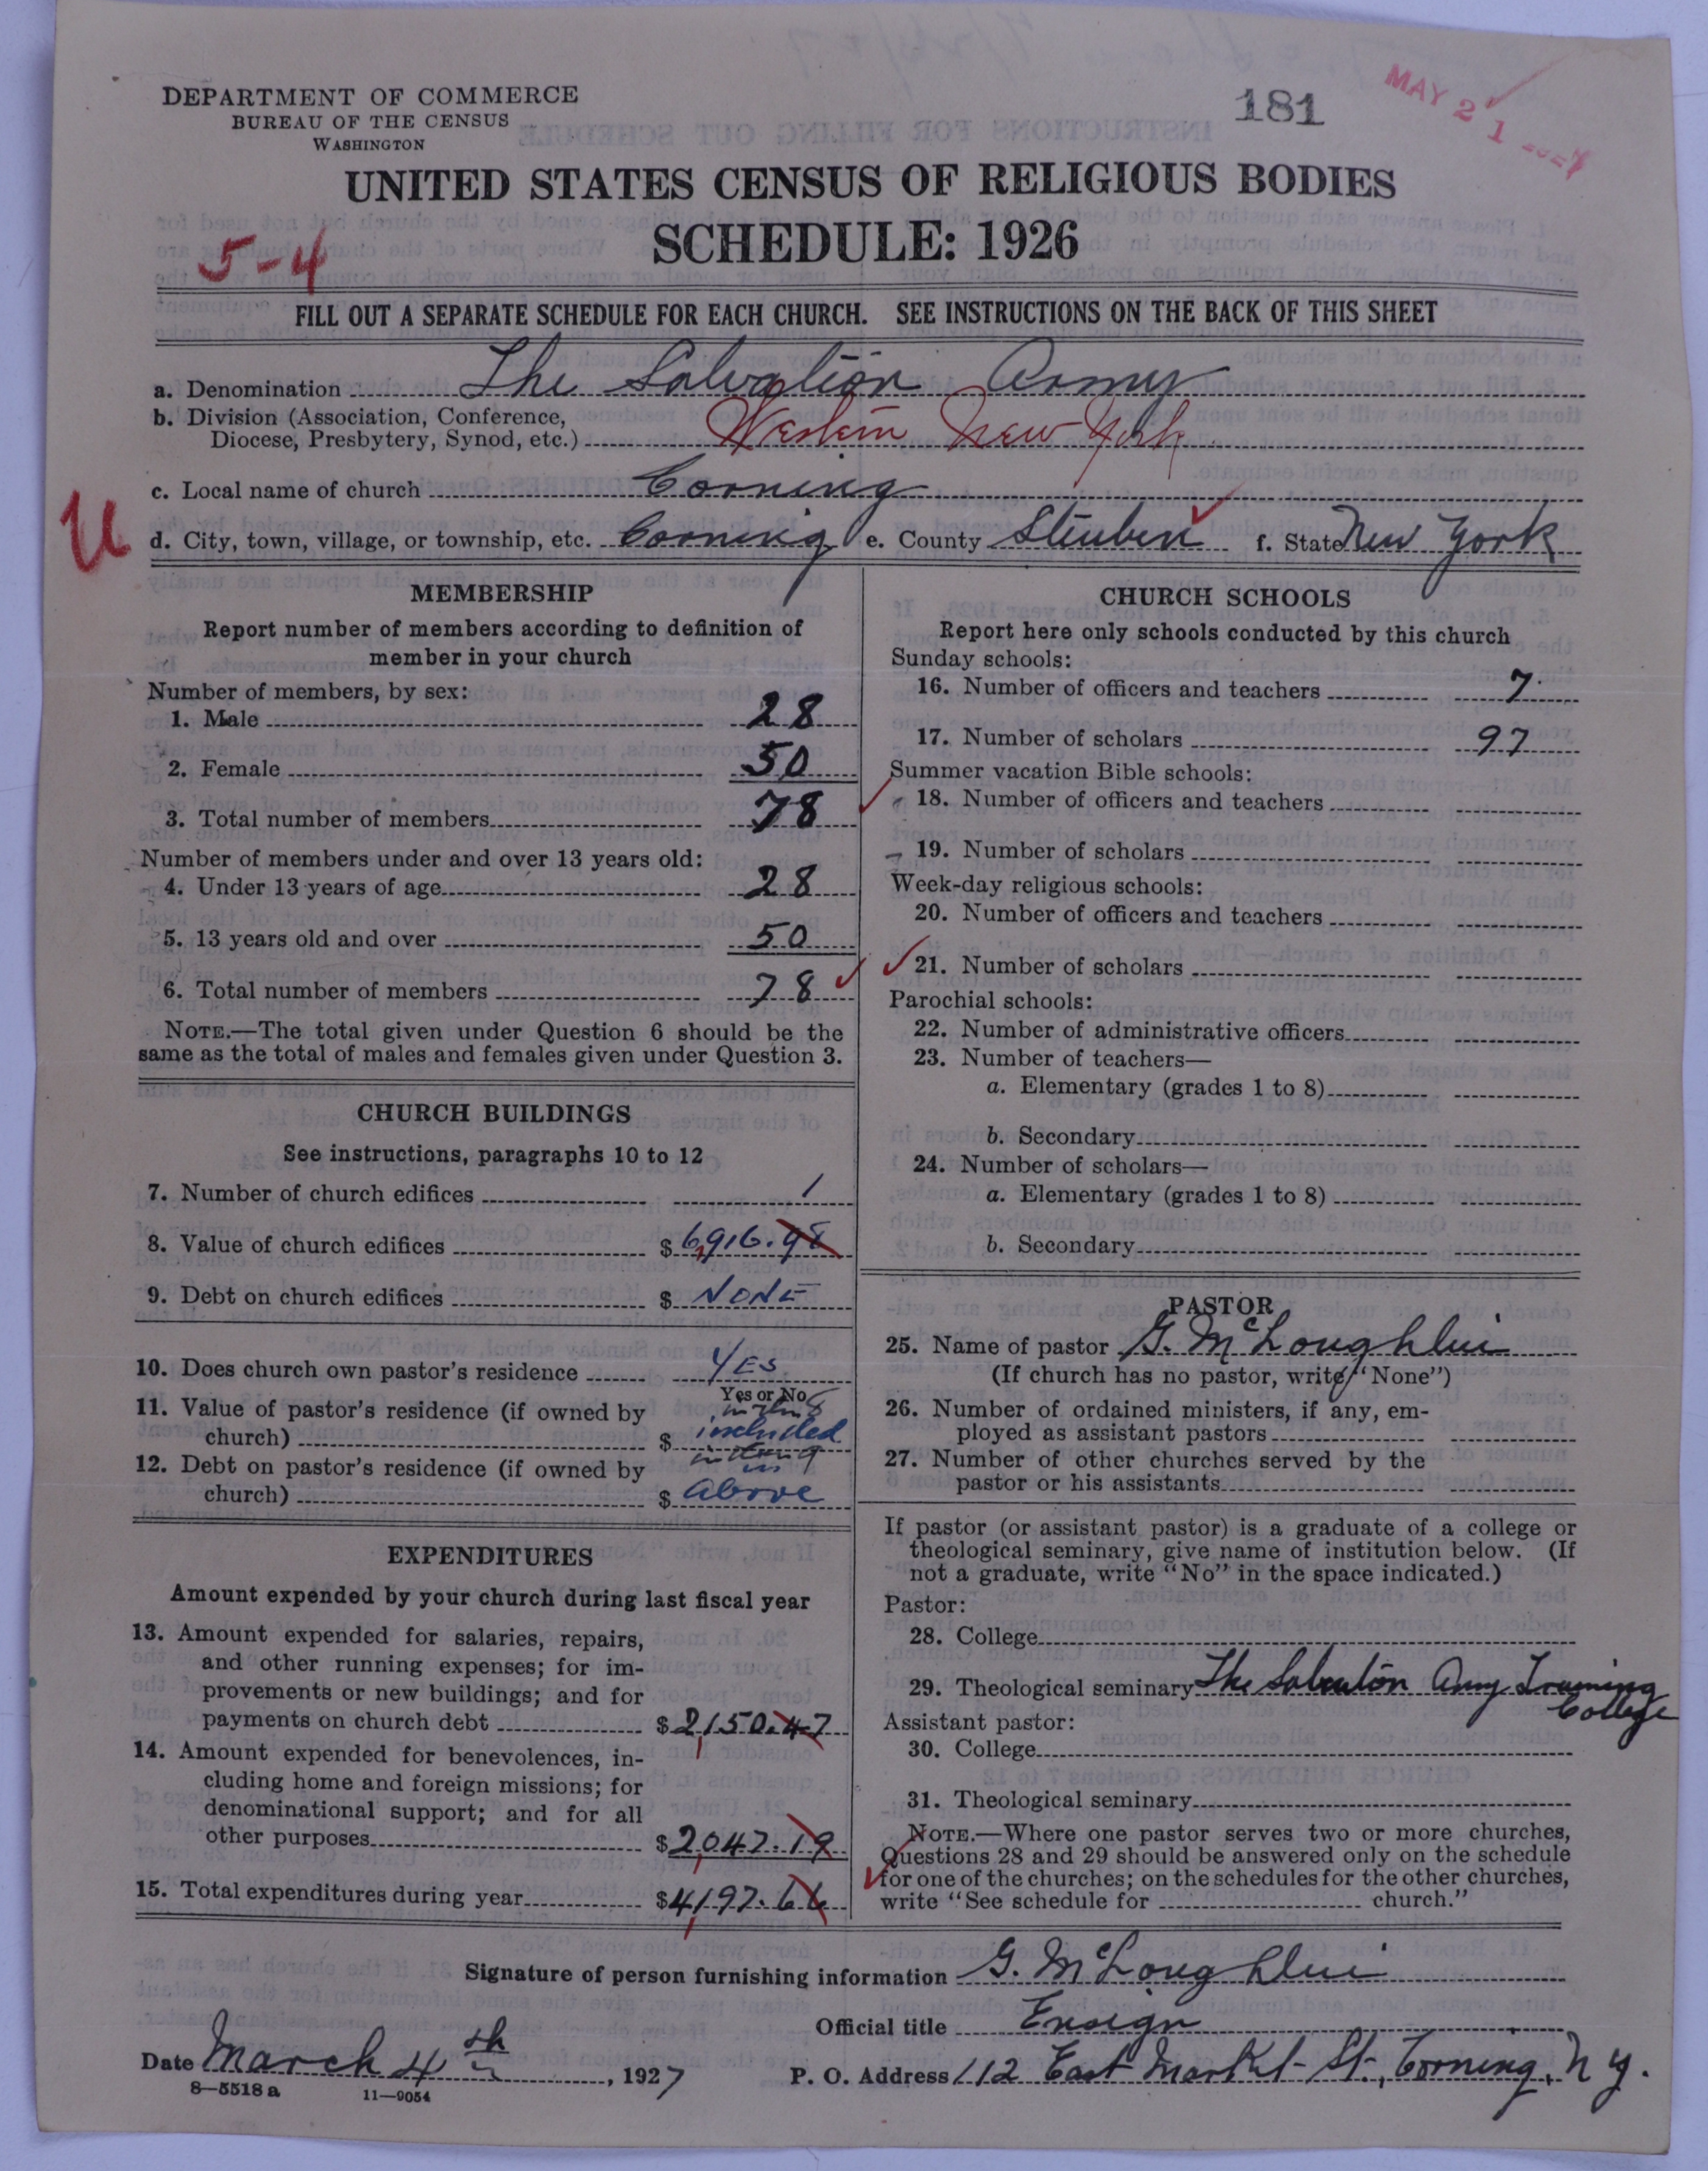 DEPARTMENT OF COMMERCE
BUREAU OF THE CENSUS
WASHINGTON
181
MAY 21 1927
UNITED STATES CENSUS OF RELIGIOUS BODIES
SCHEDULE: 1926
5-4
FILL OUT A SEPARATE SCHEDULE FOR EACH CHURCH. SEE INSTRUCTIONS ON THE BACK OF THIS SHEET
a. Denomination The Salvation Army
b. Division (Association, Conference,
Diocese, Presbytery, Synod, etc.) Western New York
c. Local name of church Corning
U
d. City, town, village, or township, etc. Corning e. County Steuben f. State New York
MEMBERSHIP
Report number of members according to definition of
member in your church
Number of members, by sex:
1. Male 28
2. Female 50
3. Total number of members 78
Number of members under and over 13 years old:
4. Under 13 years of age 28
5. 13 years old and over 50
6. Total number of members 78
NOTE.—The total given under Question 6 should be the
same as the total of males and females given under Question 3.
CHURCH BUILDINGS
See instructions, paragraphs 10 to 12
7. Number of church edifices 1
8. Value of church edifices $ 6,916.98
9. Debt on church edifices $ NONE
10. Does church own pastor's residence YES
Yes or No
11. Value of pastor's residence (if owned by
church) $ included
12. Debt on pastor's residence (if owned by
in
church) $ above
EXPENDITURES
Amount expended by your church during last fiscal year
13. Amount expended for salaries, repairs,
and other running expenses; for im-
provements or new buildings; and for
payments on church debt $ 2,150.47
14. Amount expended for benevolences, in-
cluding home and foreign missions; for
denominational support; and for all
other purposes $ 2,047.19
15. Total expenditures during year $ 4,197.66
CHURCH SCHOOLS
Report here only schools conducted by this church
Sunday schools:
16. Number of officers and teachers 7
17. Number of scholars 97
Summer vacation Bible schools:
18. Number of officers and teachers
19. Number of scholars
Week-day religious schools:
20. Number of officers and teachers
21. Number of scholars
Parochial schools:
22. Number of administrative officers
23. Number of teachers—
a. Elementary (grades 1 to 8)
b. Secondary
24. Number of scholars—
a. Elementary (grades 1 to 8)
b. Secondary
PASTOR
25. Name of pastor G. McLoughlin
(If church has no pastor, write "None")
26. Number of ordained ministers, if any, em-
ployed as assistant pastors
27. Number of other churches served by the
pastor or his assistants
If pastor (or assistant pastor) is a graduate of a college or
theological seminary, give name of institution below. (If
not a graduate, write "No" in the space indicated.)
Pastor:
28. College
29. Theological seminary The Salvation Army Training
College
Assistant pastor:
30. College
31. Theological seminary
NOTE.—Where one pastor serves two or more churches,
Questions 28 and 29 should be answered only on the schedule
for one of the churches; on the schedules for the other churches,
write "See schedule for church."
Signature of person furnishing information G. McLoughlin
Official title Ensign
Date March 4th, 1927
P. O. Address 112 East Market St., Corning, N Y.
8—5518 a 11—9054